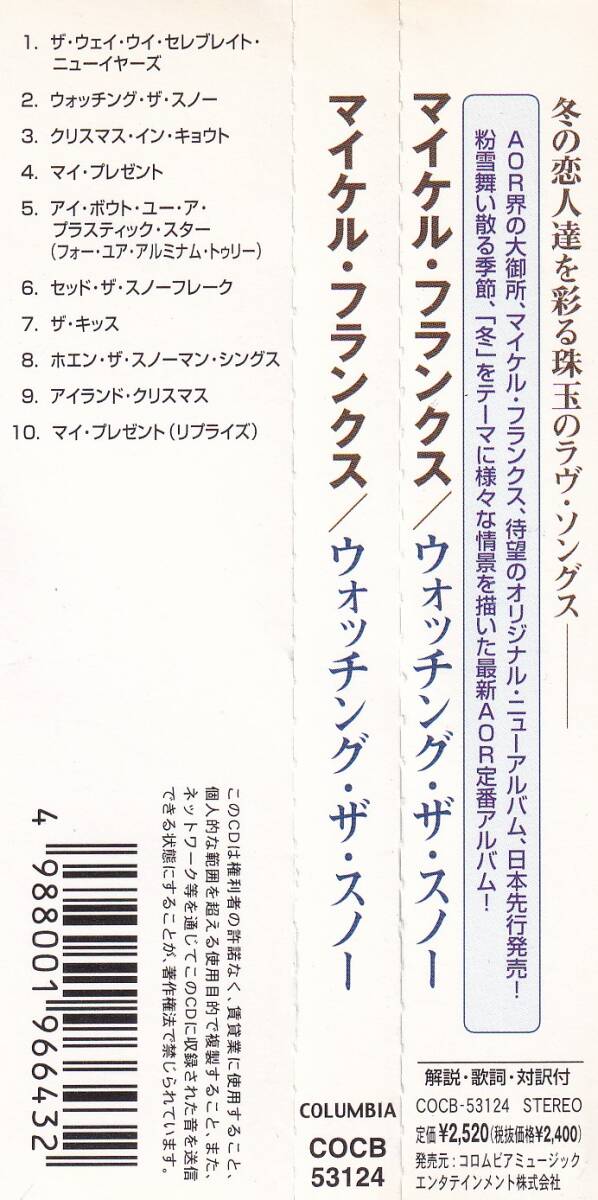 1. ザ・ウェイ・ウイ・セレブレイト・
ニューイヤーズ
2. ウォッチング・ザ・スノー
3. クリスマス・イン・キョウト
4. マイ・プレゼント
5. アイ・ボウト・ユー・ア・
プラスティック・スター
(フォー・ユア・アルミナム・トゥリー)
6. セッド・ザ・スノーフレーク
7. ザ・キッス
8. ホエン・ザ・スノーマン・シングス
9. アイランド・クリスマス
10. マイ・プレゼント(リプライズ)
このCDは権利者の許諾なく、賃貸業に使用すること、
個人的な範囲を超える使用目的で複製すること、また、
ネットワーク等を通じてこのCDに収録された音を送信
できる状態にすることが、著作権法で禁じられています。
4 988001 966432
マイケル・フランクス/ウォッチング・ザ・スノー
COLUMBIA
COCB
53124
マイケル・フランクス/ウォッチング・ザ・スノー
冬の恋人達を彩る珠玉のラヴ・ソングス——
AOR界の大御所、マイケル・フランクス、待望のオリジナル・ニューアルバム、日本先行発売!
粉雪舞い散る季節、「冬」をテーマに様々な情景を描いた最新AOR定番アルバム!
解説・歌詞・対訳付
COCB-53124 STEREO
定価¥2,520(税抜価格¥2,400)
発売元:コロムビアミュージック
エンタテインメント株式会社